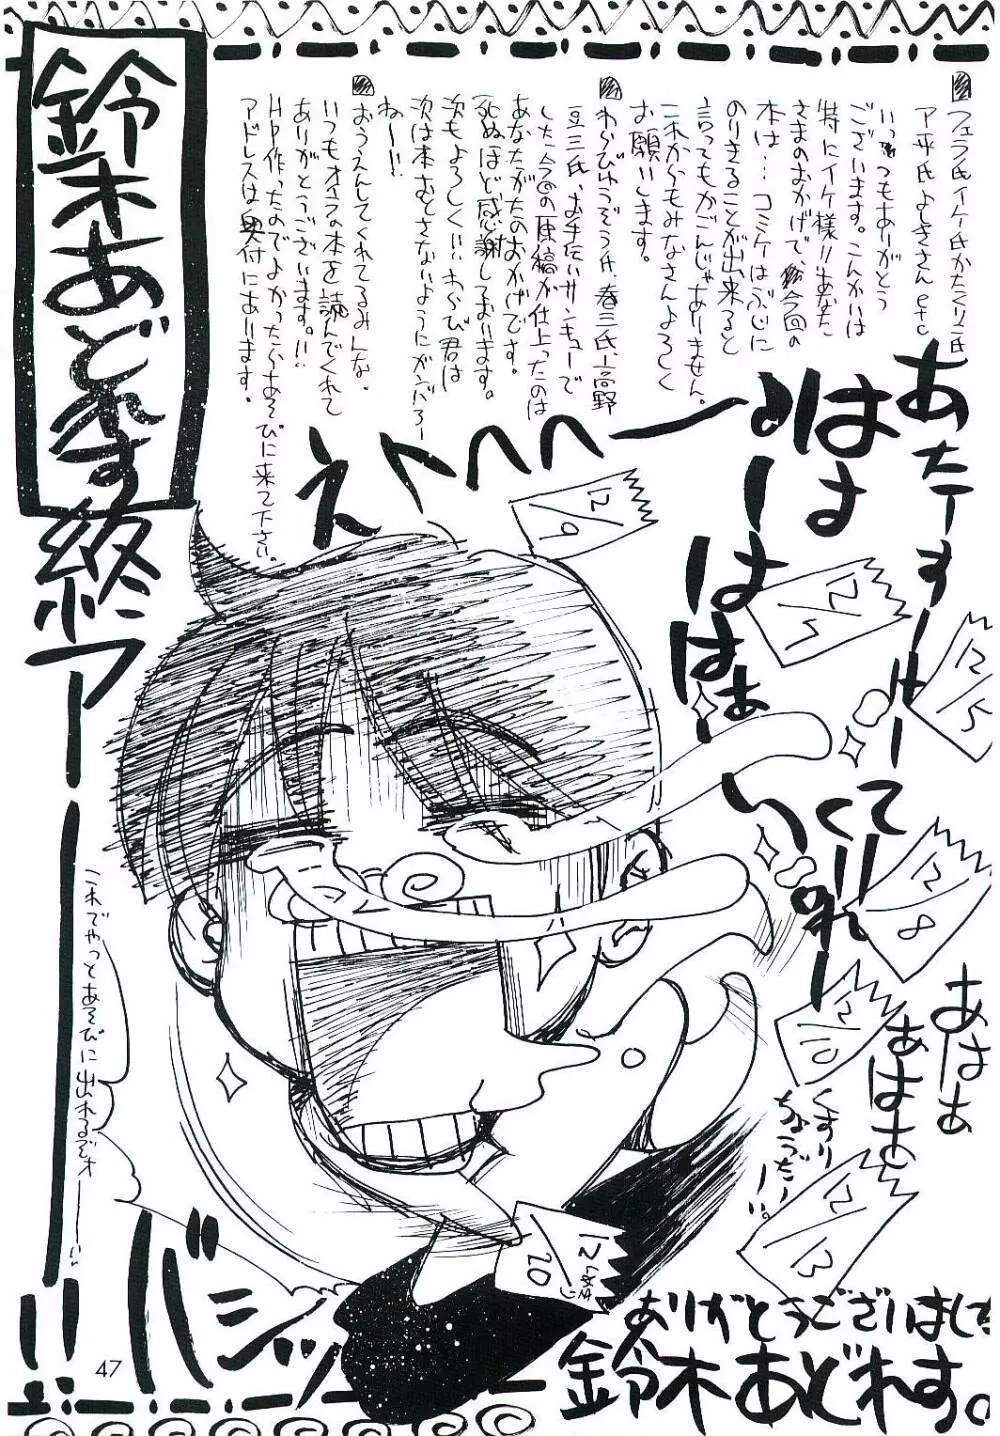 フェラ氏イケ氏かたくりこ氏
ア平氏よしきさんetc
いっつもありがとう
ございます。こんかいは
特にイケ様!!あなた
さまのおかげで、今回の
本は…コミケはぶじに
のりきることが出来ると
言ってもかごんじゃありません。
これからもみなさんよろしく
お願いします。
わらびゅうぞう氏、春三氏、高野
豆三氏、お手伝いサンキューで
した今回の原稿が仕上ったのは
あなたがたのおかげです。
死ぬほど感謝しております。
次もよろしくいいわらび君は
次は本おとさないようにがんばろー
ねー!!
おうえんしてくれてるみんな。
いつもオラの本を読んでくれて
ありがとうございます。!!
HP作ったのでよかったらあそびに来て下さい。
アドレスは奥付にあります。
鈴木あどれす
終アーーー!!
あたーすーけーてー!!
はははははははぁ
いくーのれー
えへへへー
12/9
12/5
12/15
12/8
12/10
12/13
12/20
12
〆切
あはぁ
あはぁ
くすり
ちょうだーい。
これでやっとあそびに出れるぞオーーー!!
バシッ
ありがとうございました
鈴木あどれす。
47